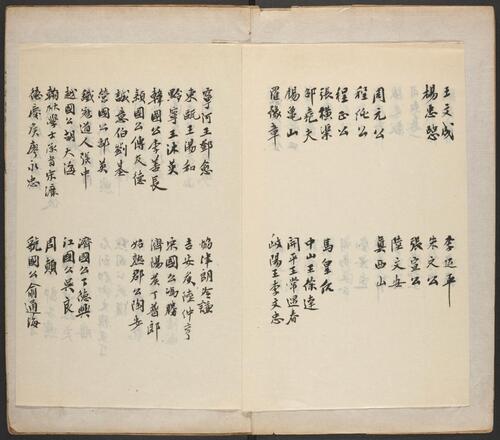 王文成
楊忠愍
周元公
程純公
程正公
張橫渠
邵堯夫
楊龜山
羅豫章
李延平
朱文公
張宣公
陸文安
真西山
馬皇后
中山王徐達
開平王常遇春
岐陽王李文忠
寧河王鄧愈
東甌王湯和
黔寧王沐英
韓國公李善長
潁國公傅友德
誠意伯劉基
營國公郭英
鐵冠道人張中
越國公胡大海
翰林學士承旨宋濂
德慶侯廖永忠
協律郎冷謙
吉安侯陸仲亨
宋國公馮勝
濟陽侯丁普郎
姑孰郡公陶安
濟國公丁德興
江國公吳良
周顛
虢國公俞通海